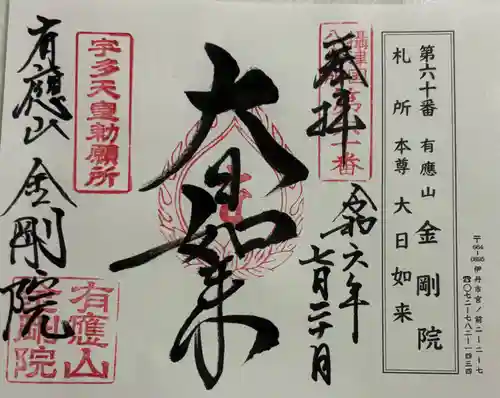 第六十番 有應山 金剛院
札所本尊 大日如来
〒664-0895 伊丹市宮ノ前二-二-七
☎〇七二-七八二-一四三四
奉拝
令和六年
七月二十日
大日如来
宇多天皇勅願所
有應山 金剛院
有應山
金剛院